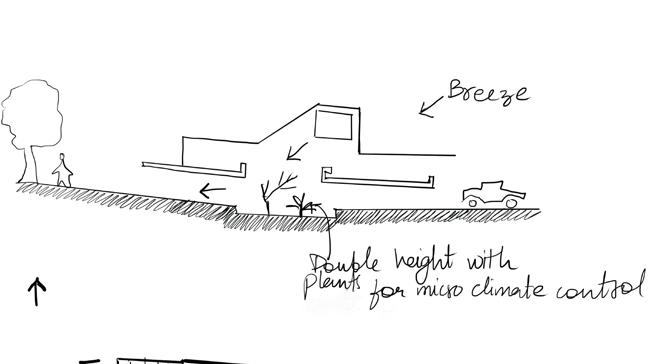 Breeze
Double height with
Plants for micro climate control